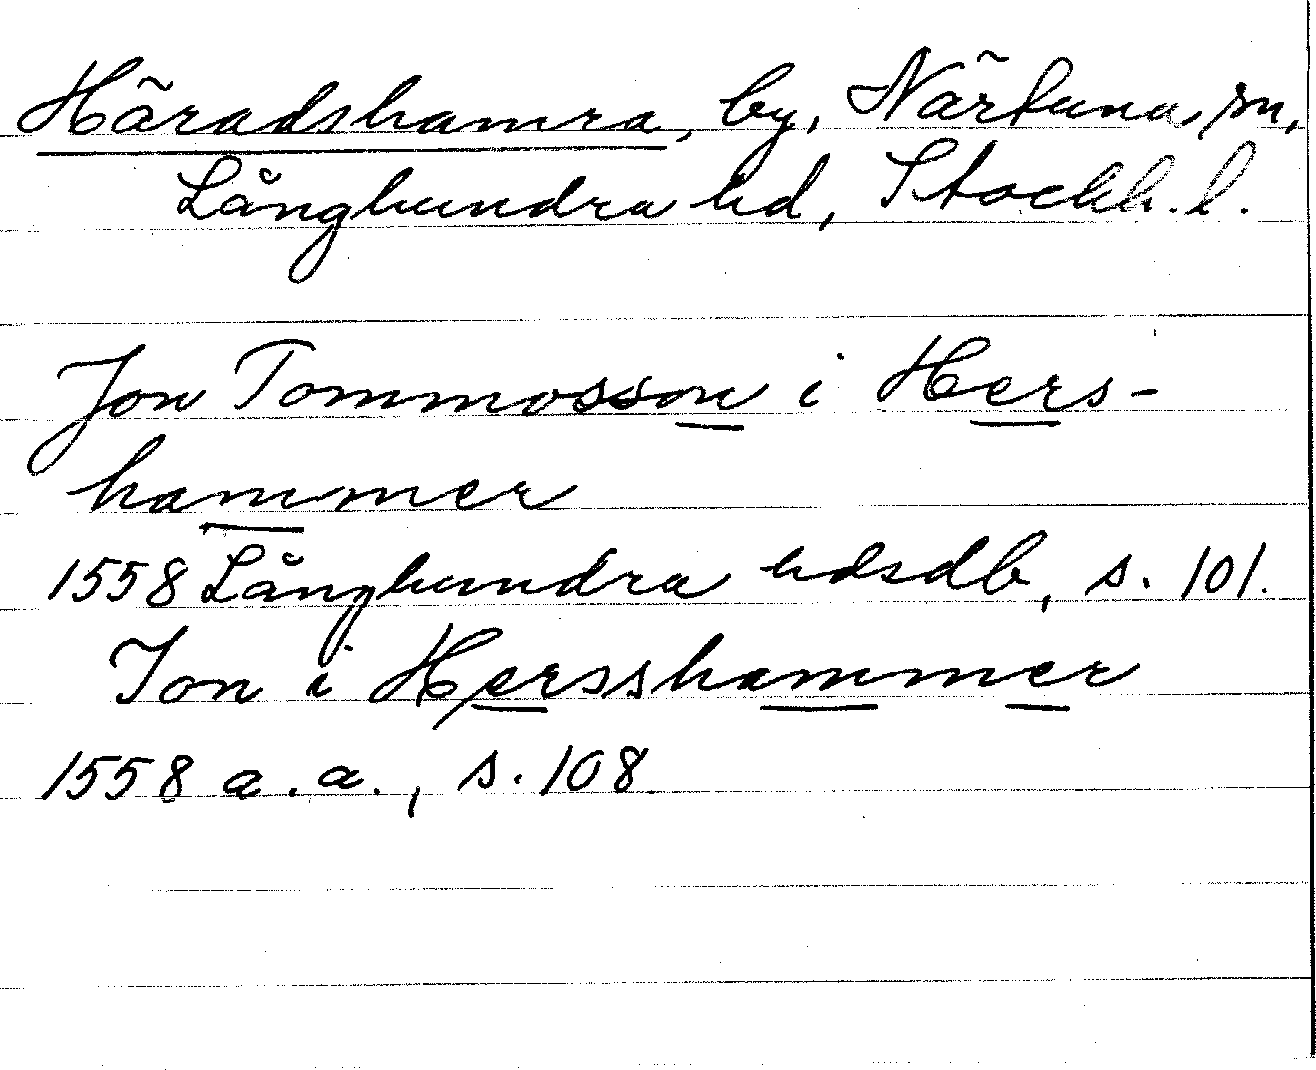 Häradshamra, by, Närtuna sn,
Långhundra hd, Stockh. l.
Jon Tommosson i Hers-
hammer
1558 Långhundra hdsdb, s. 101.
Jon i Hersshammer
1558 a.a., s. 108